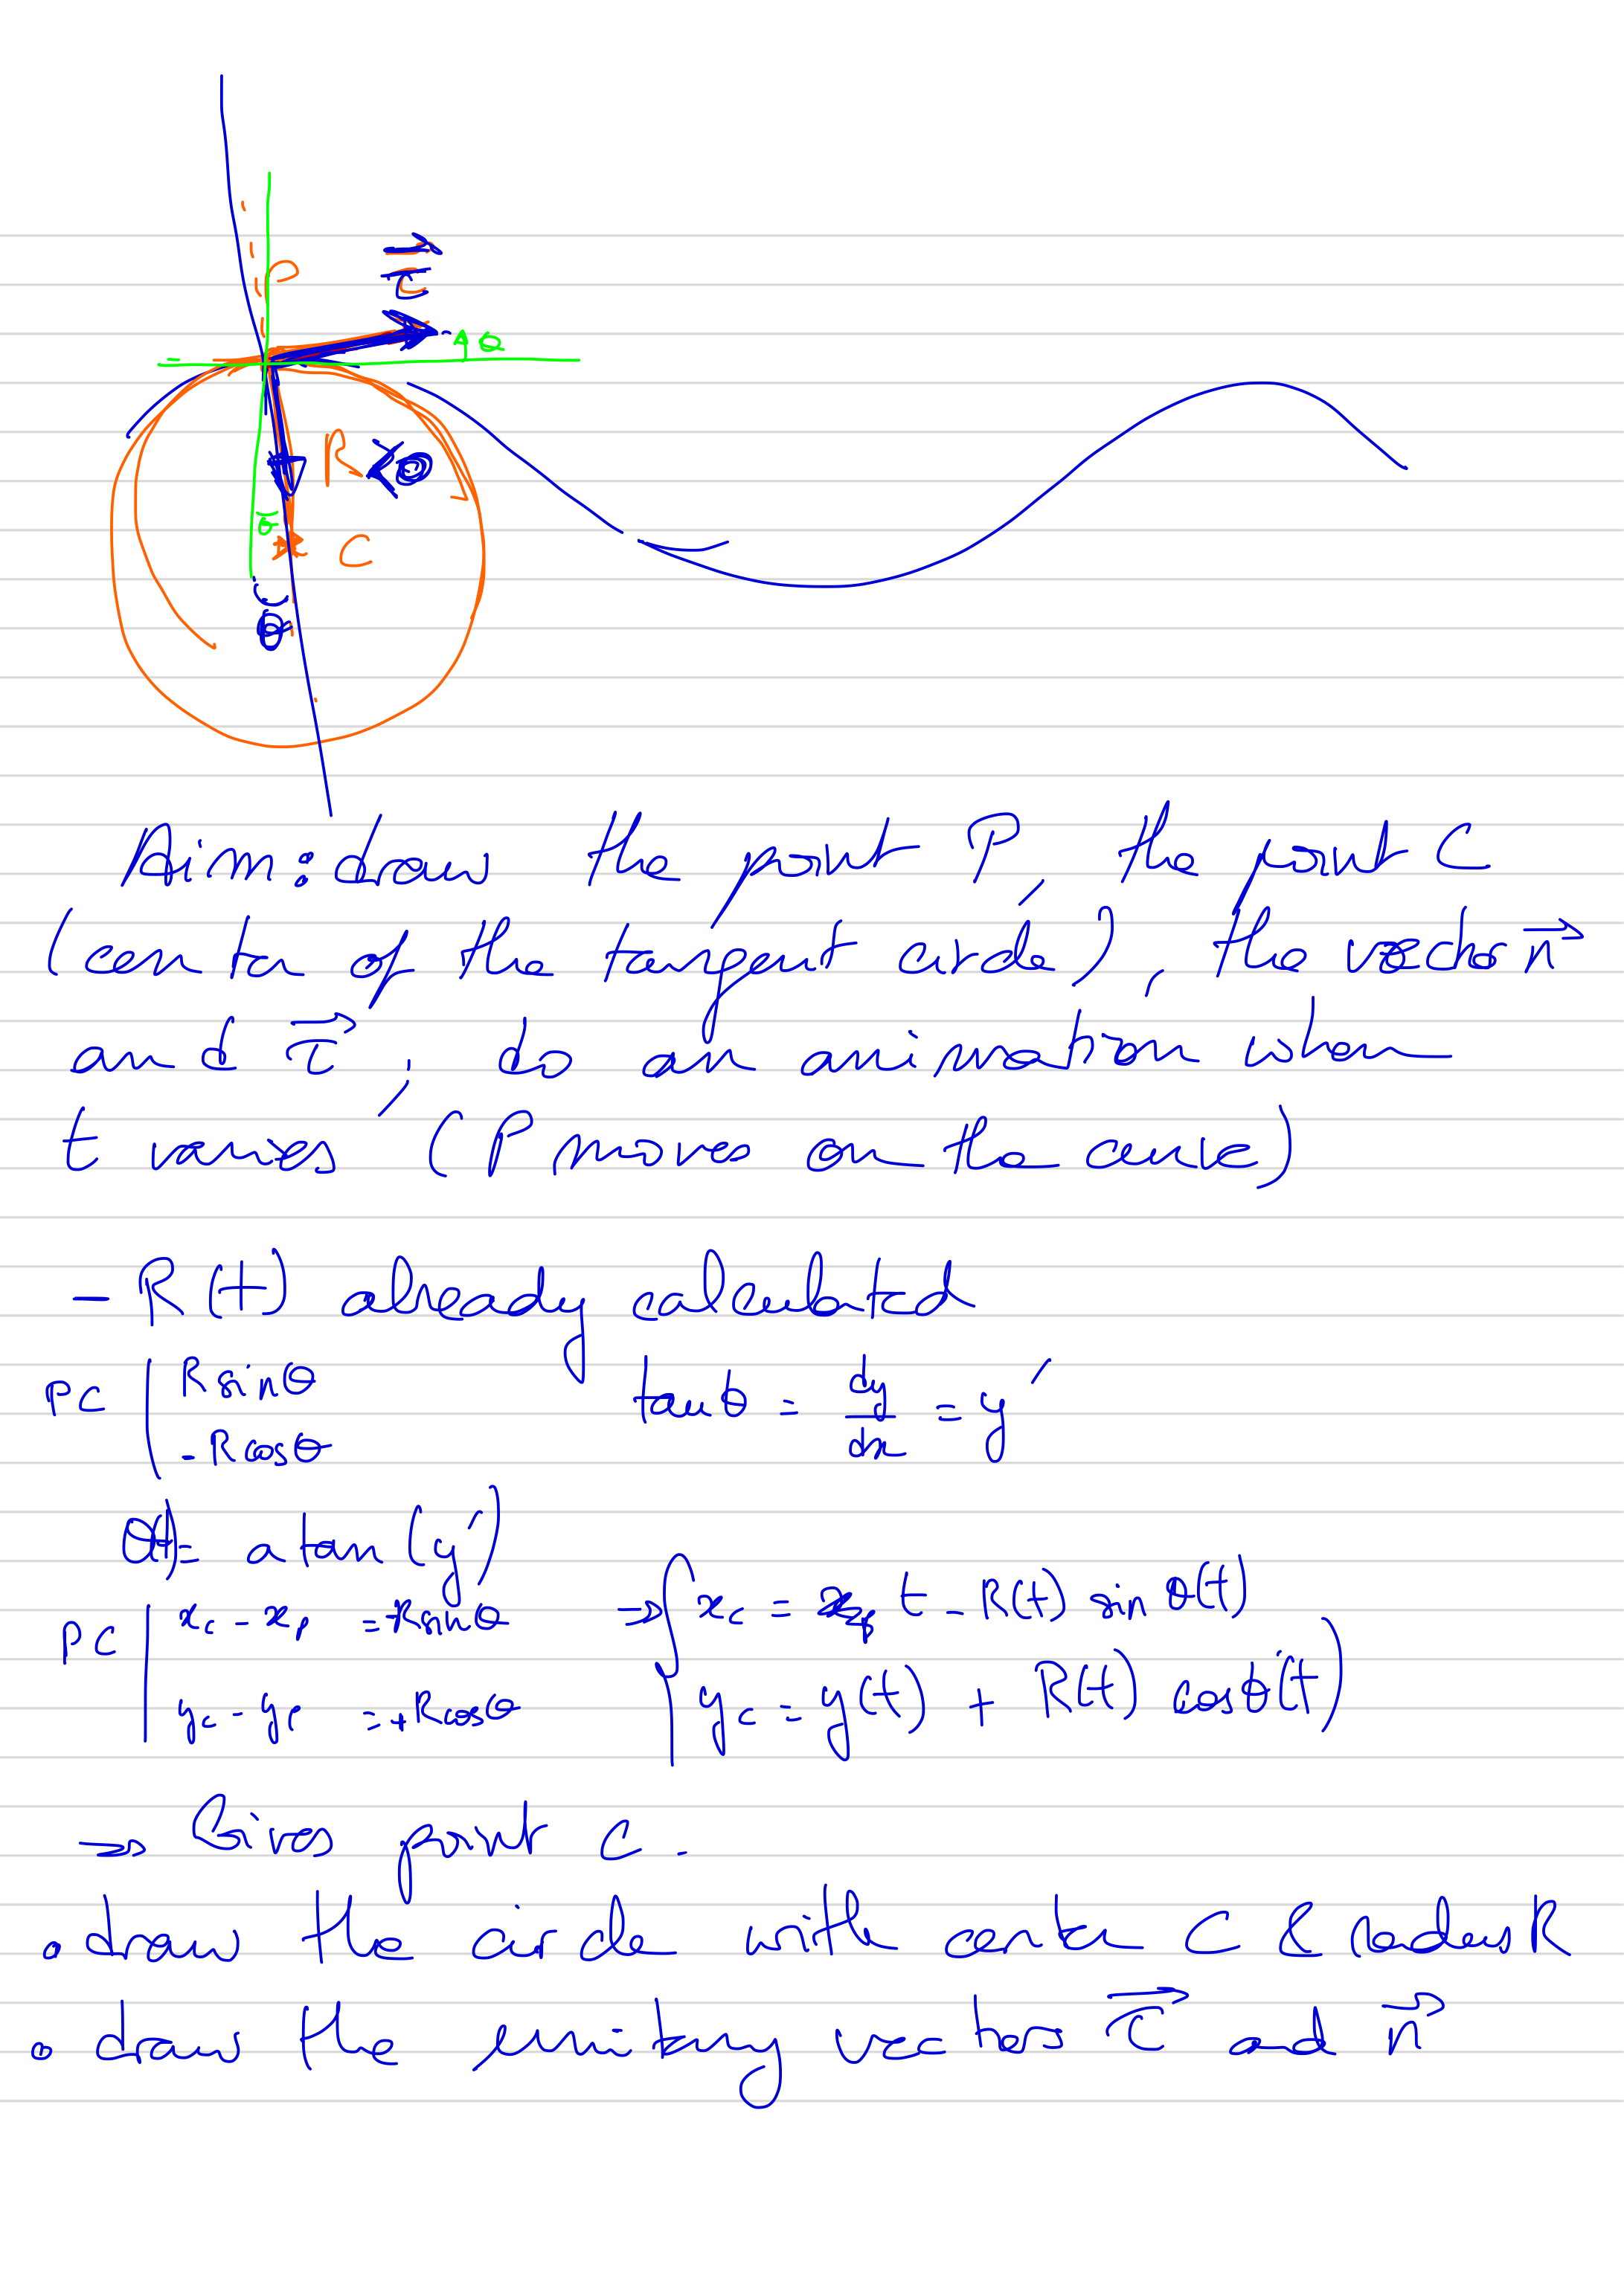 P
τ⃗
θ
R<0
C
θ
Aim: draw the point P, the point C
(center of the tangent circle), the vector n⃗
and τ⃗, do an animation when
t varies (P moves on the curve)
- R(t) already calculated
PC | R sinθ
-R cosθ
tanθ = dy/dx = y'
θ(t) = atan(y')
PC | xc - xp = -R sinθ ⇒ { xc = t - R(t) sinθ(t)
yc - yp = +R cosθ yc = y(t) + R(t) cosθ(t)
⇒ Gives point C.
• draw the circle with center C & radius R
• draw the unitary vectors τ⃗ and n⃗